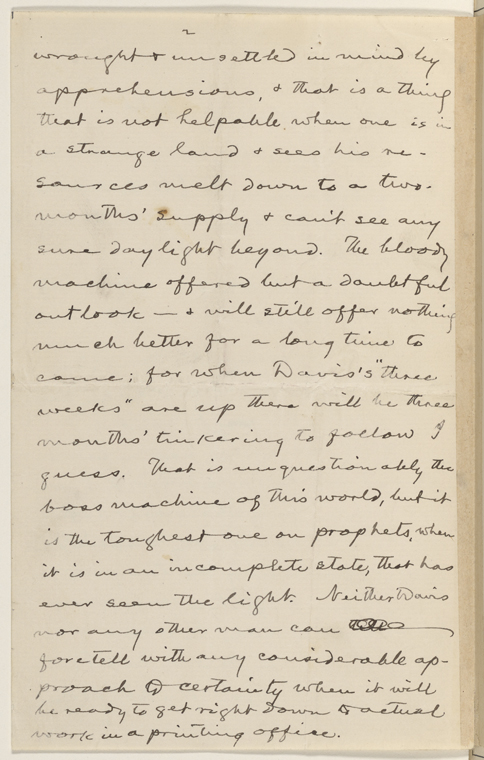 2
wrought & unsettled in mind by
apprehensions, & that is a thing
that is not helpable when one is in
a strange land & sees his re-
sources melt down to a two-
months' supply & can't see any
sure daylight beyond. The bloody
machine offered but a doubtful
outlook — & will still offer nothing
much better for a long time to
come; for when Davis's "three
weeks" are up there will be three
months' tinkering to follow I
guess. That is unquestionably the
boss machine of this world, but it
is the toughest one on prophets, when
it is in an incomplete state, that has
ever seen the light. Neither Davis
nor any other man can
foretell with any considerable ap-
proach to certainty when it will
be ready to get right down to actual
work in a printing office.